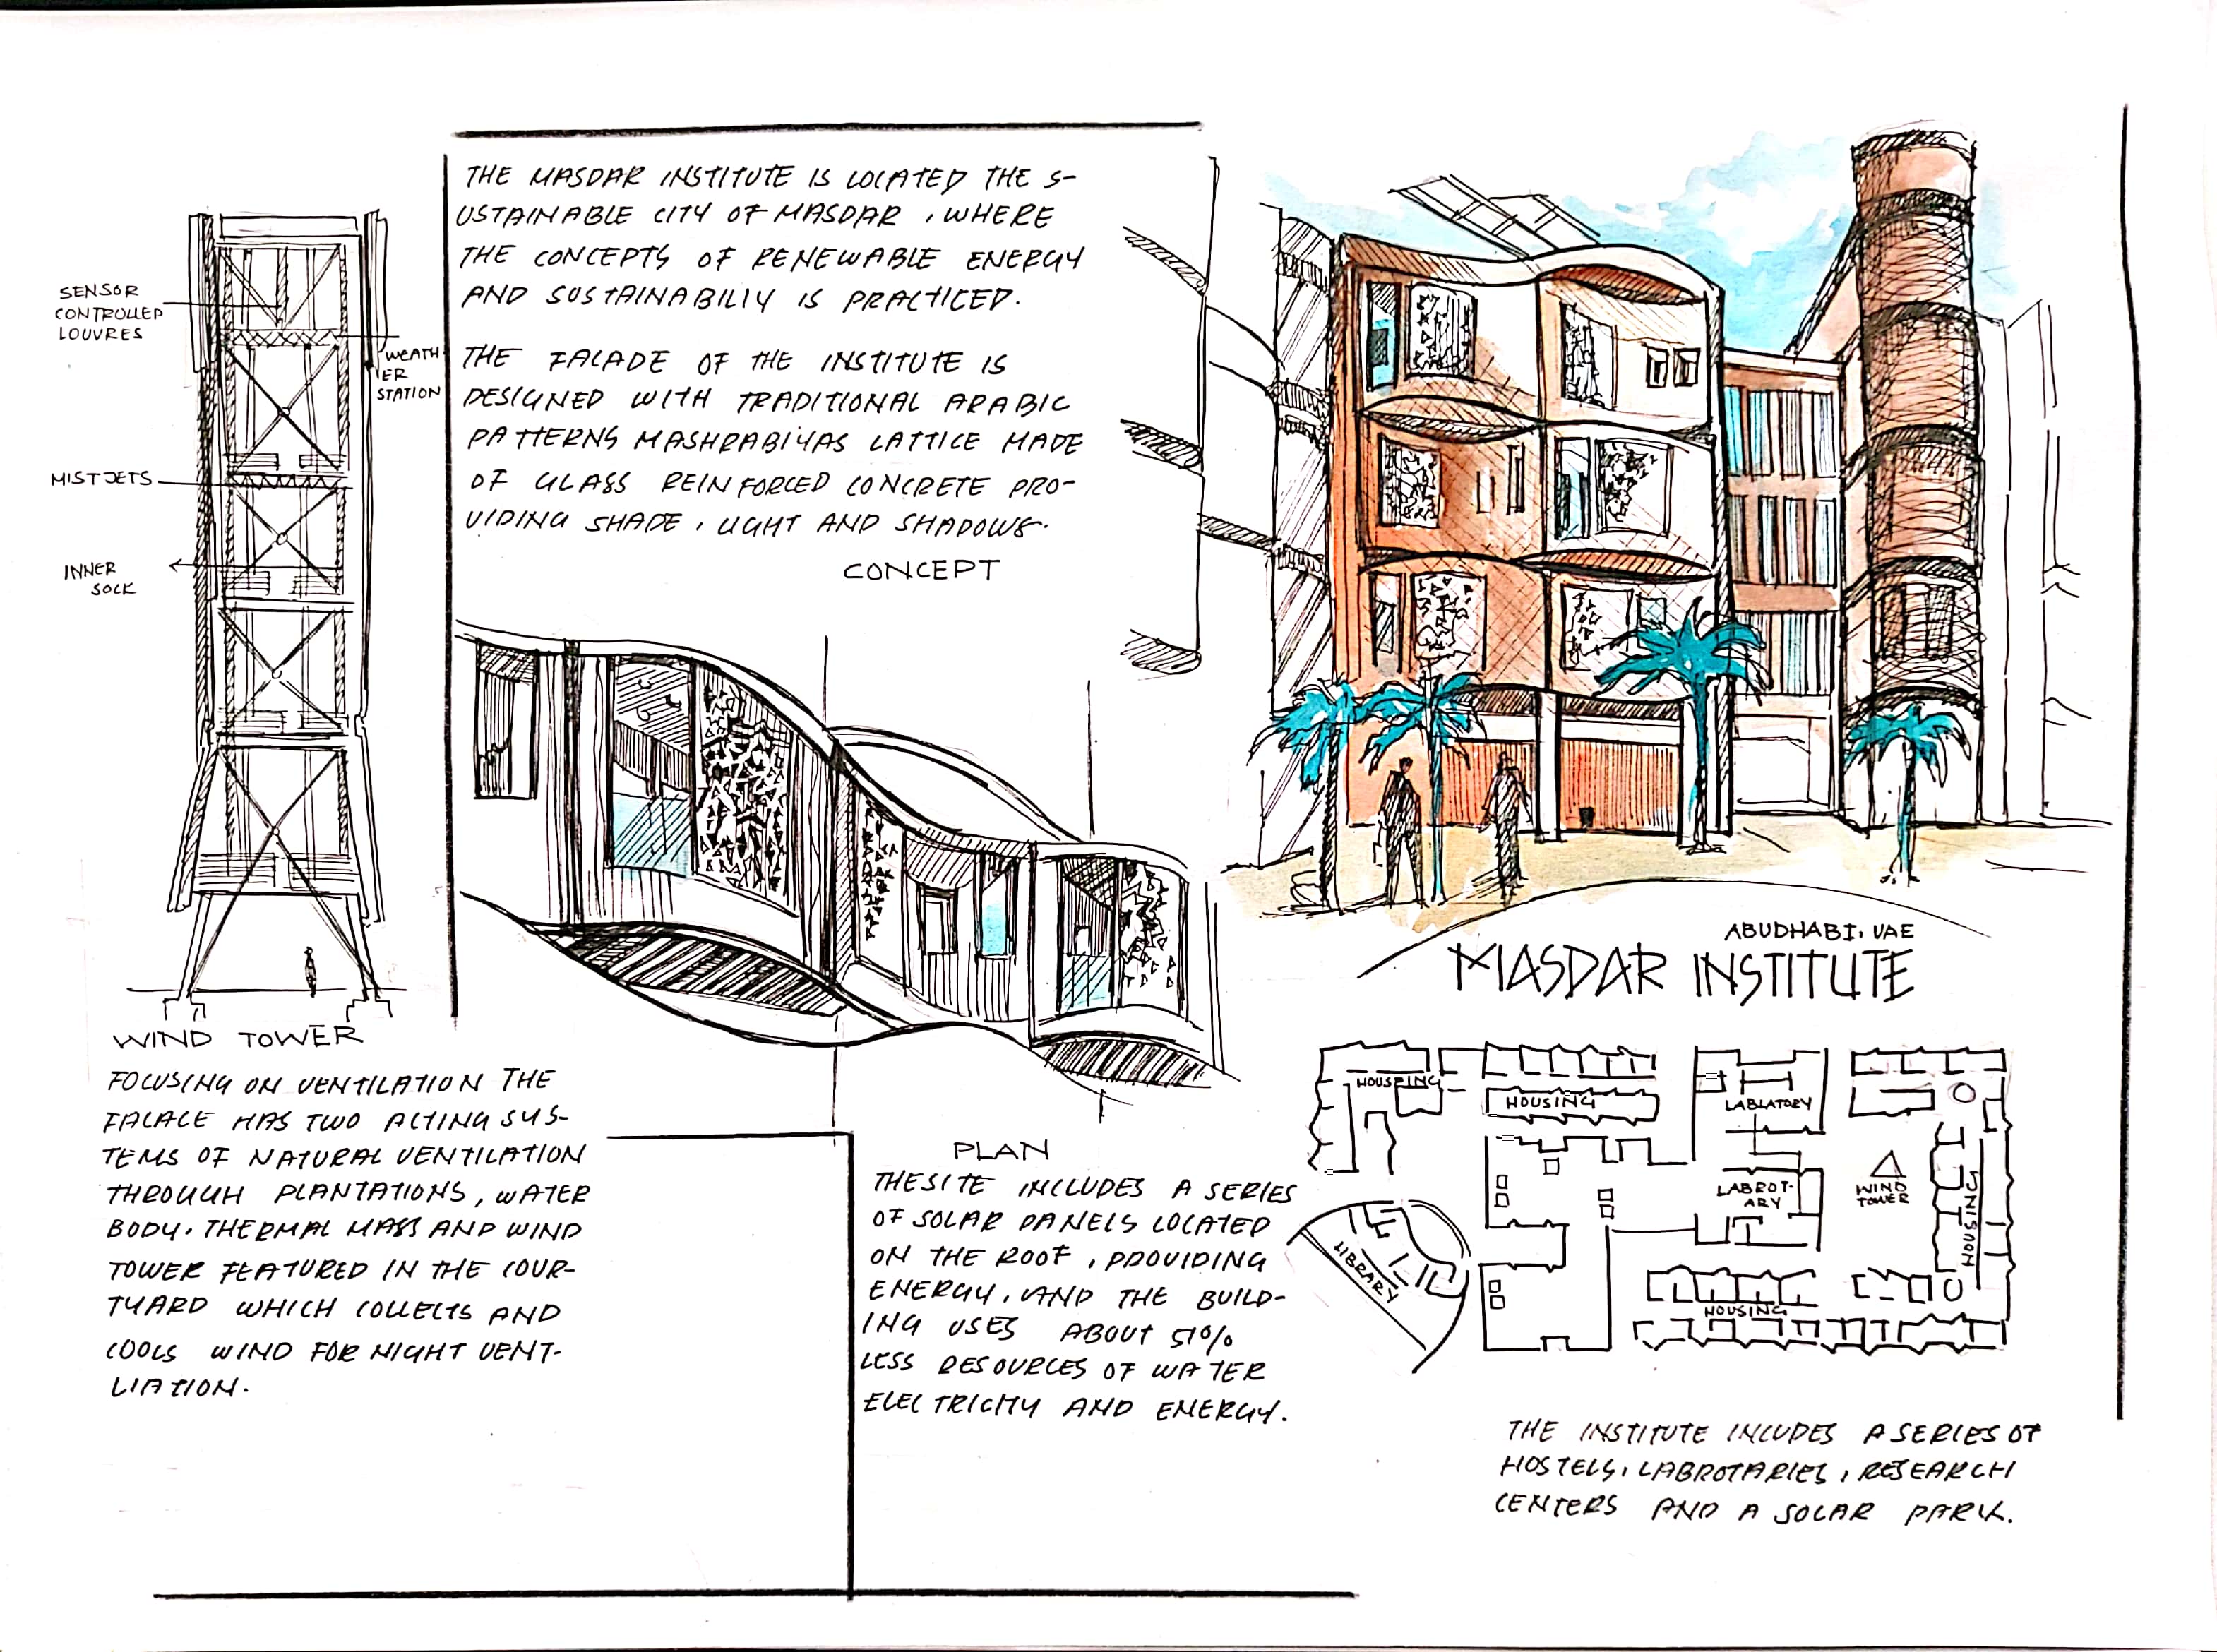 THE MASDAR INSTITUTE IS LOCATED THE S-
USTAINABLE CITY OF MASDAR, WHERE
THE CONCEPTS OF RENEWABLE ENERGY
AND SUSTAINABILIY IS PRACTICED.
THE FACADE OF THE INSTITUTE IS
DESIGNED WITH TRADITIONAL ARABIC
PATTERNS MASHRABIYAS LATTICE MADE
OF GLASS REINFORCED CONCRETE PRO-
VIDING SHADE, LIGHT AND SHADOWS.
CONCEPT
SENSOR
CONTROLLED
LOUVRES
WEATH
ER
STATION
MIST JETS
INNER
SOCK
WIND TOWER
FOCUSING ON VENTILATION THE
FACACE HAS TWO ACTING SYS-
TEMS OF NATURAL VENTILATION
THROUGH PLANTATIONS, WATER
BODY. THERMAL MASS AND WIND
TOWER FEATURED IN THE COUR-
TYARD WHICH COLLECTS AND
COOLS WIND FOR NIGHT VENT-
LIATION.
PLAN
THESITE INCLUDES A SERIES
OF SOLAR PANELS LOCATED
ON THE ROOF, PROVIDING
ENERGY, AND THE BUILD-
ING USES ABOUT 51%
LESS RESOURCES OF WATER
ELECTRICITY AND ENERGY.
ABUDHABI, UAE
MASDAR INSTITUTE
HOUSING
HOUSING
LABLATORY
LABROT-
ARY
WIND
TOWER
HOUSING
LIBRARY
HOUSING
THE INSTITUTE INCUDES A SERIES OF
HOSTELS, LABROTARIES, RESEARCH
CENTERS AND A SOLAR PARK.